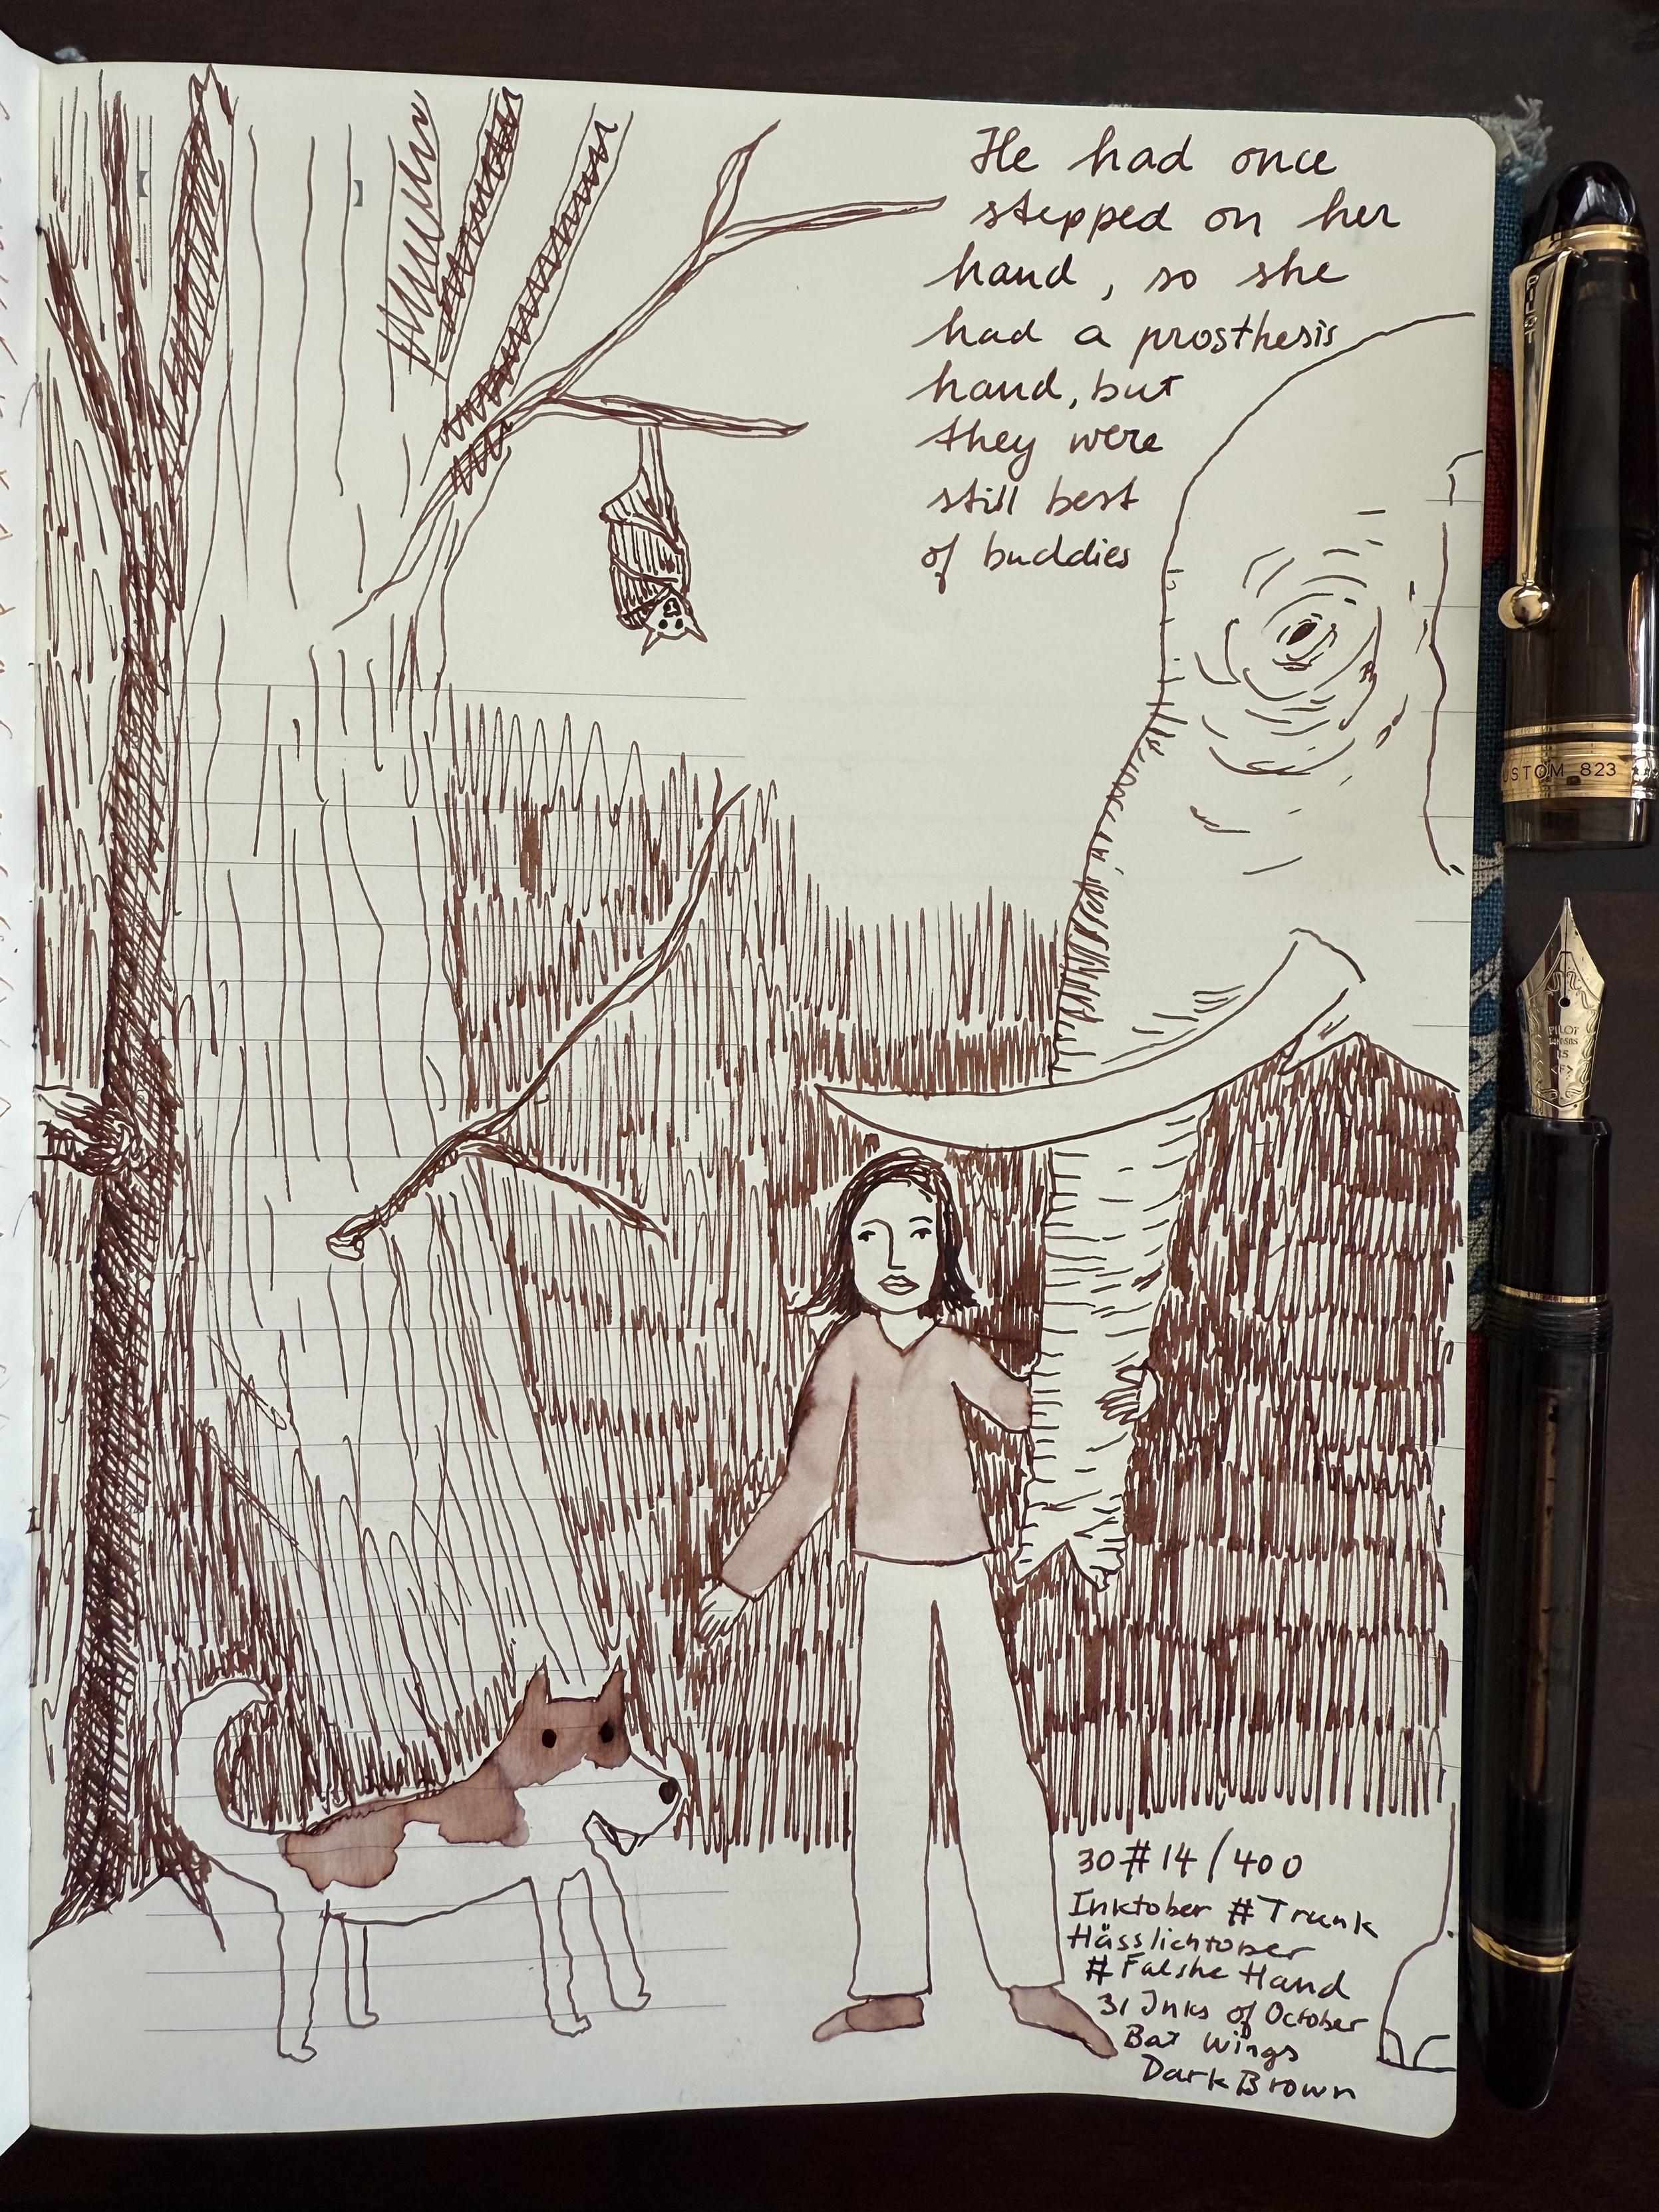 He had once
stepped on her
hand, so she
had a prosthesis
hand, but
they were
still best
of buddies
30#14/400
Inktober #Trunk
Hässlichtober
#Falshe Hand
31 Inks of October
Bat Wings
Dark Brown
PILOT
USTOM 823
PILOT
15
<F>